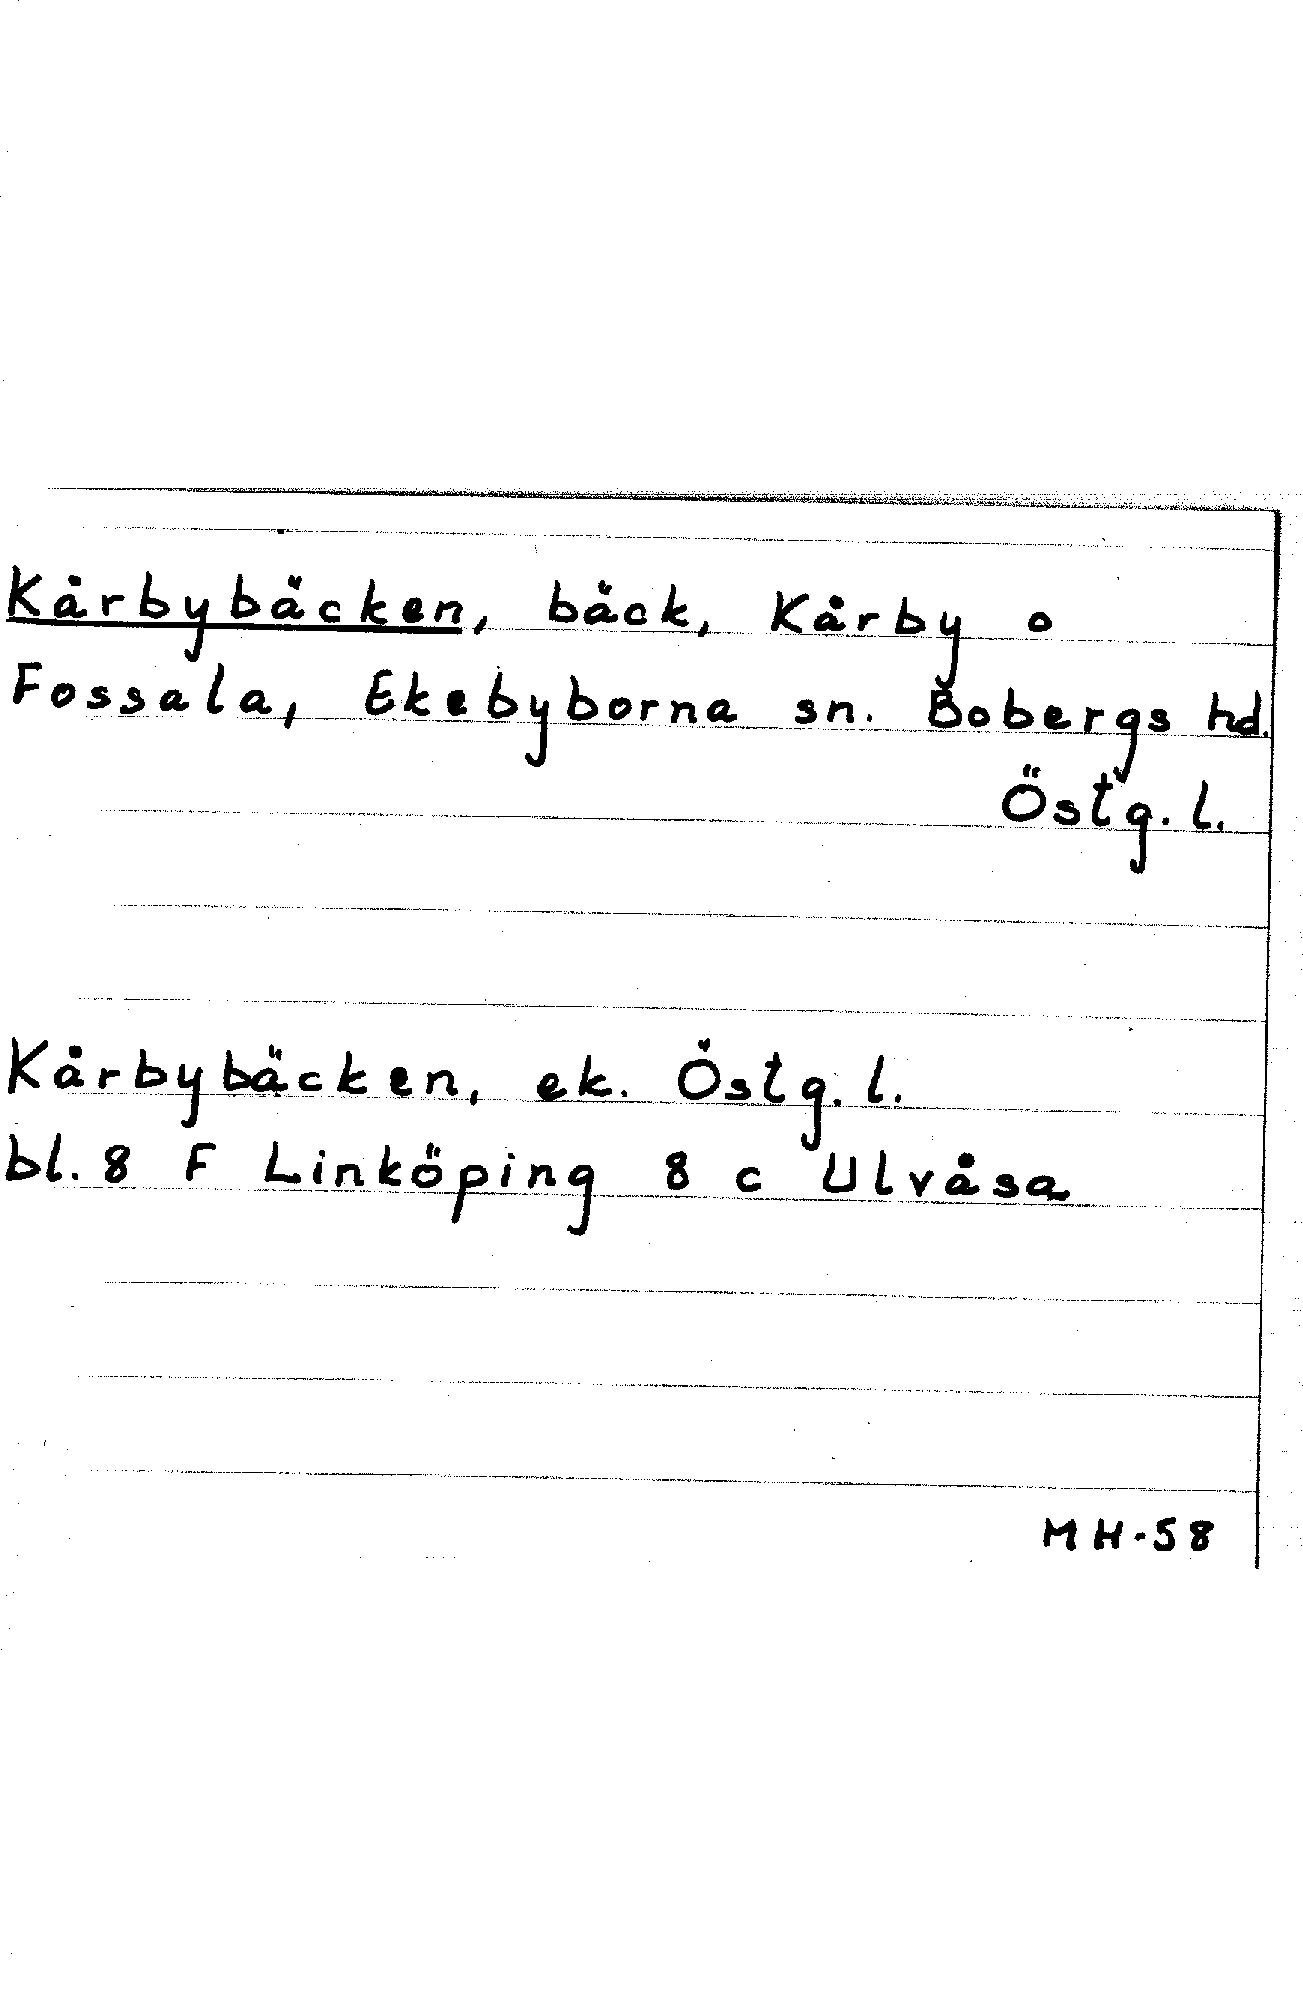 Kårbybäcken, bäck, Kårby o
Fossala, Ekebyborna sn. Bobergs hd.
Östg. l.
Kårbybäcken, ek. Östg. l.
bl. 8 F Linköping 8 c Ulvåsa
MH-58